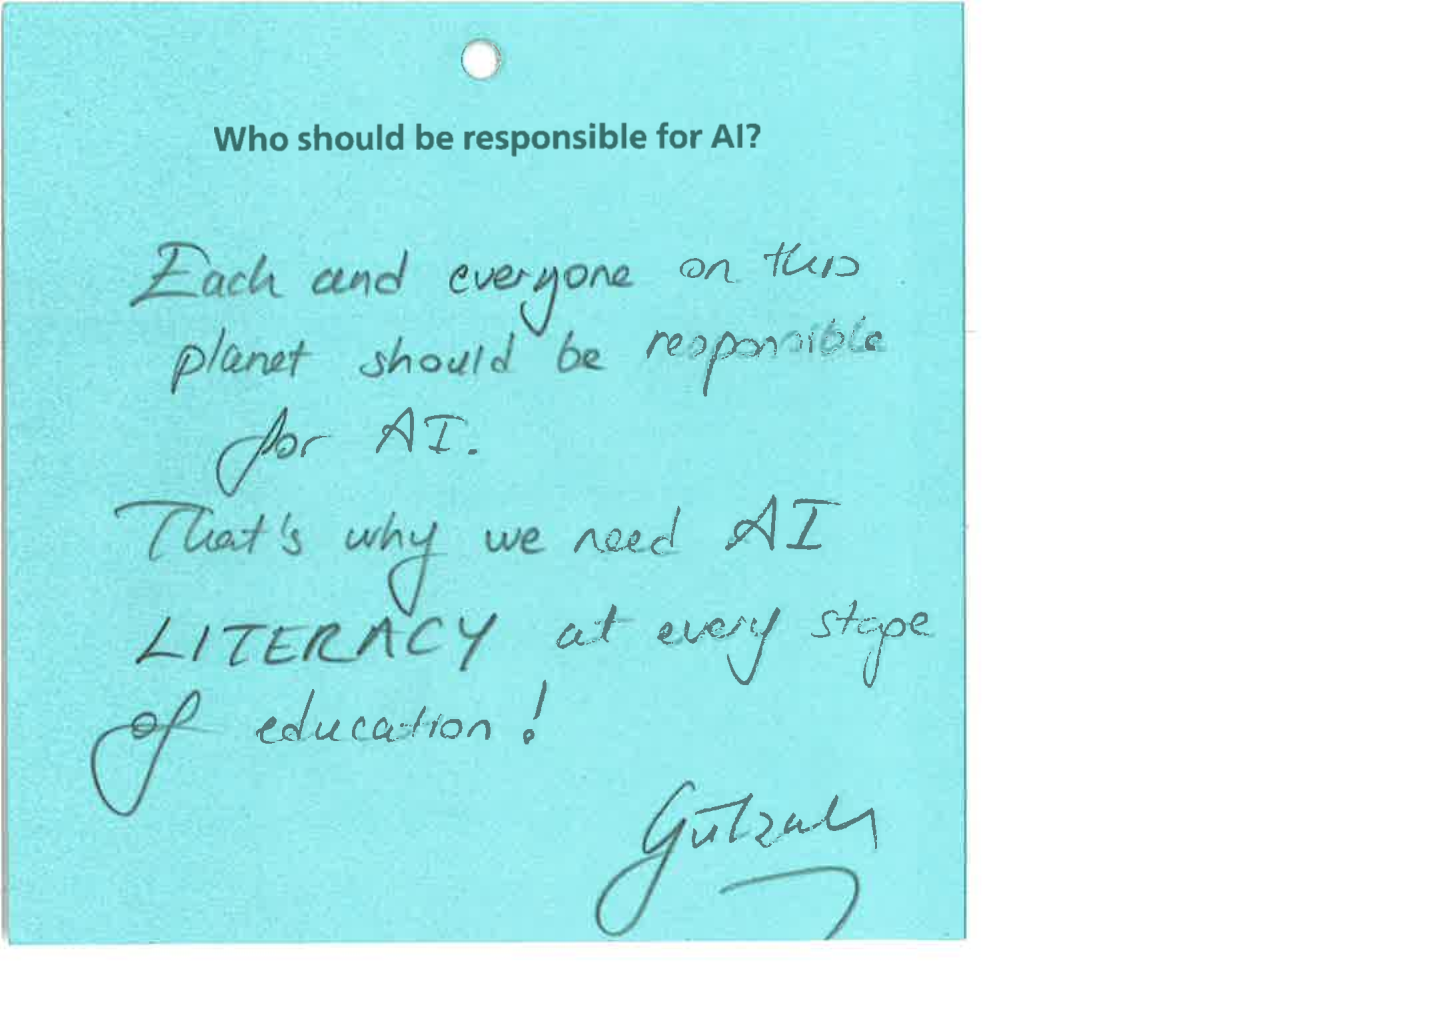 Who should be responsible for AI?
Each and everyone on this
planet should be responsible
for AI.
That's why we need AI
LITERACY at every stage
of education!